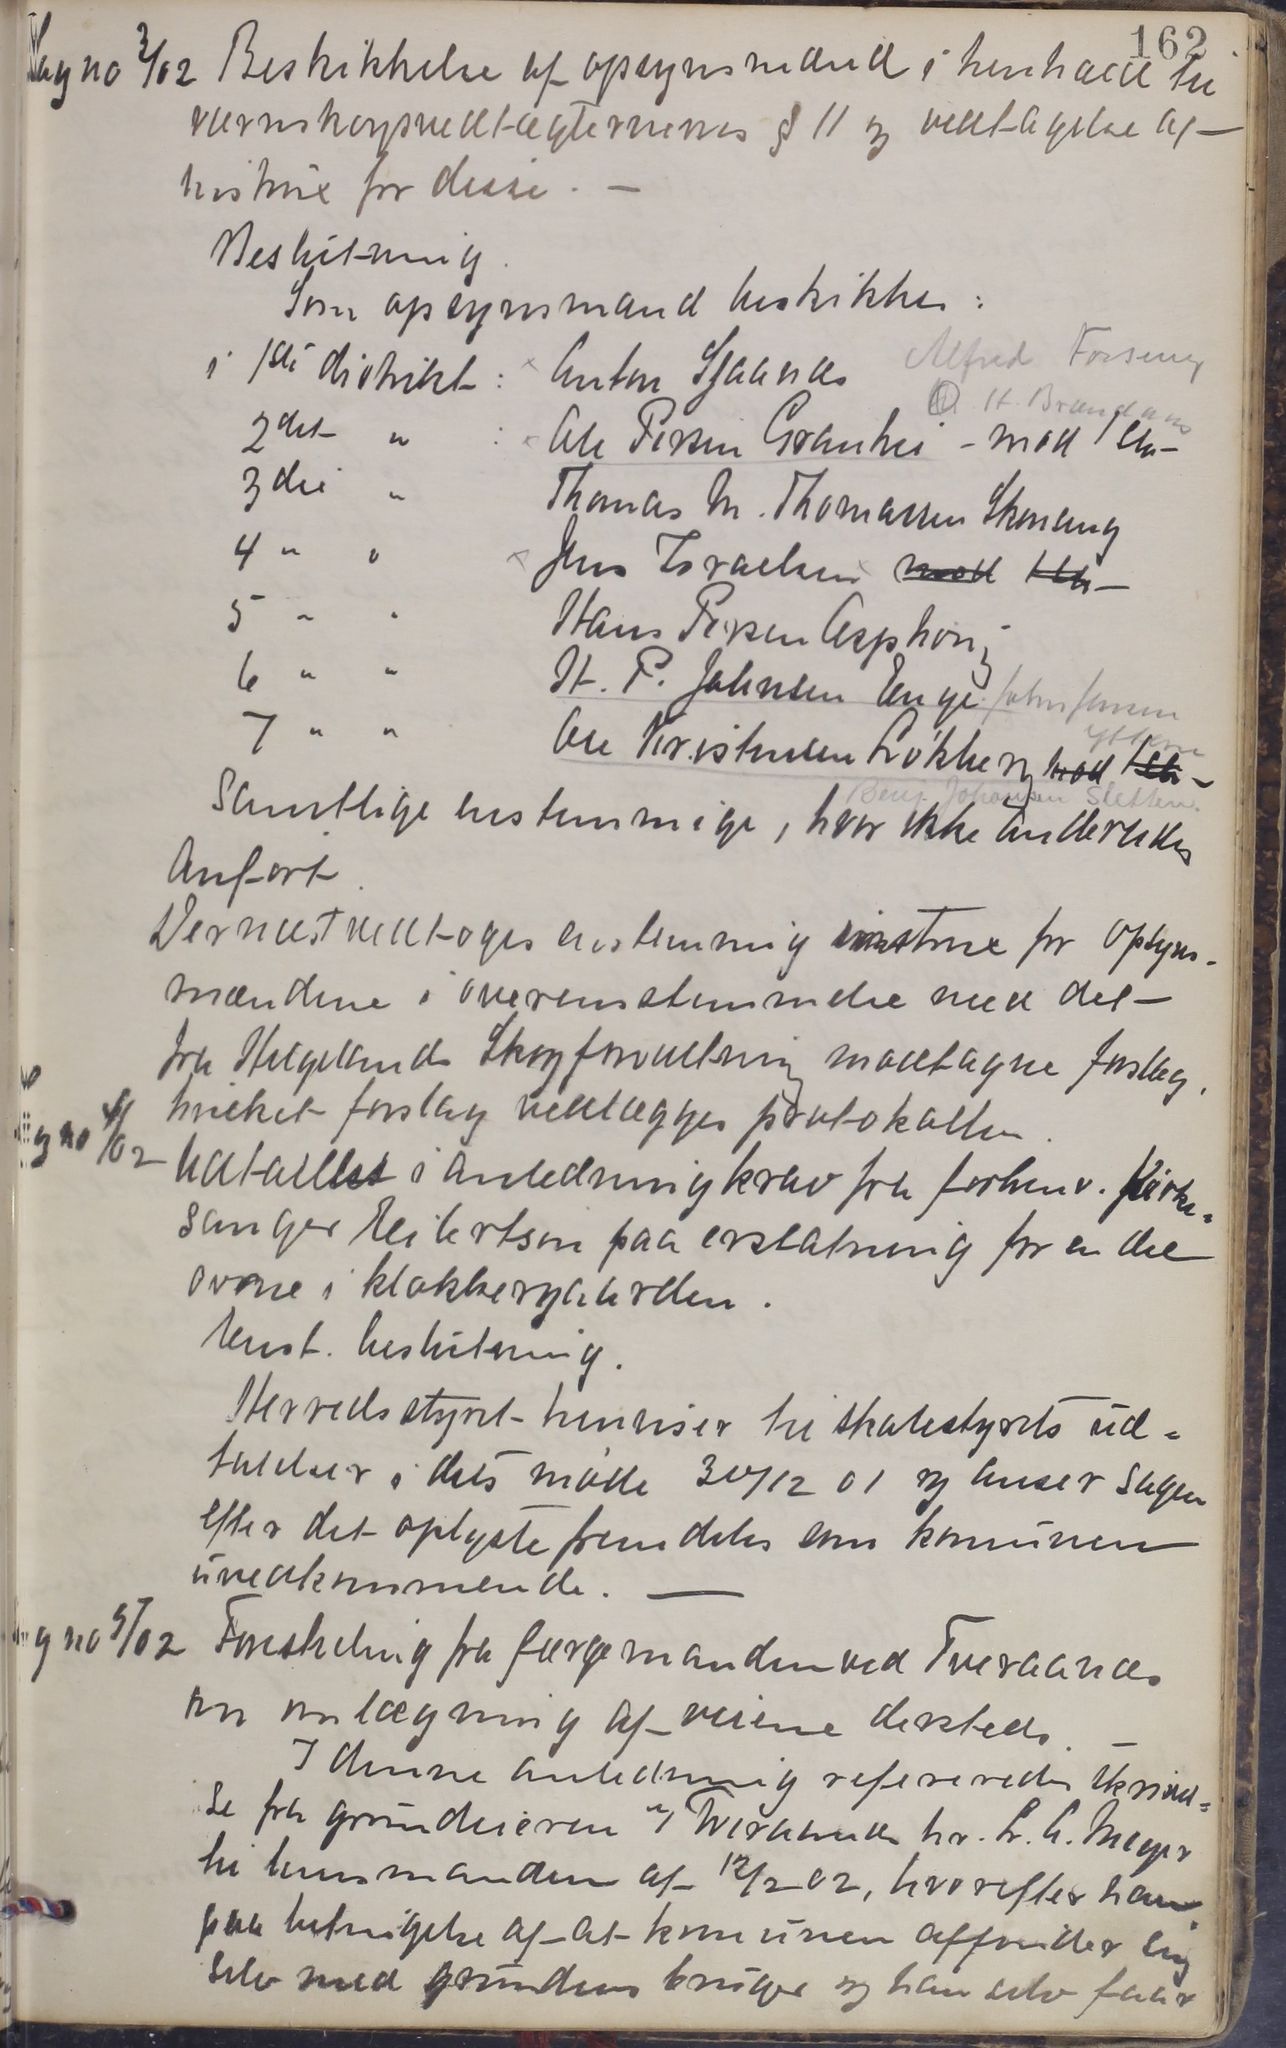 162
Sag no 3/02 Beskikkelse af opsynsmænd i henhold til
værnskogsvedtægternernes § 11 og vedtagelse af
instrux for disse. —
Beslutning.
Som opsynsmænd beskikkes:
i 1ste distrikt: × Anton Sjaanes Alfred Forsmo
O. H. Brændaas
2det " : × Ole Persen Grankei - mod 1 st.-
3die " Thomas M. Thomassen Skonseng
4 " " × Jens Israelsen mod 1 st.-
5 " " Hans Persen Asphoug
6 " " H. P. Johnsen Enge John Jensen
Ytteren
7 " " Ole Kristensen Løkberg mod 1 st.-
Benj. Johansen Sletten.
Samtlige enstemmige, hvor ikke anderledes
anført.
Dernæst vedtoges enstemmig instrux for opsyns-
mændene i overensstemmelse med det
fra Helgelands Skogforvaltning modtagne forslag,
hvilket forslag vedlægges protokollen.
Sag no 4/02 Udtalelse i anledning krav fra forhenv. kirke-
sanger Eilertsen paa erstatning for en del
ovne i klokkergaarden.
Enst. beslutning.
Herredsstyret henviser til skolestyrets ud-
talelser i dets møde 30/12 01 og anser sagen
efter det oplyste fremdeles som komunen
uvedkommende. —
Sag no 5/02 Forestilling fra færgemanden ved Tveraanes
om omlægning af veiene dersteds. —
I denne anledning refereredes skrivel-
se fra grundeieren af Tveraanes hr. L. A. Meyer
til lensmanden af 12/2 02, hvorefter han,
paa betingelse af at komunen affinder sig
selv med grundens bruger og han selv faar